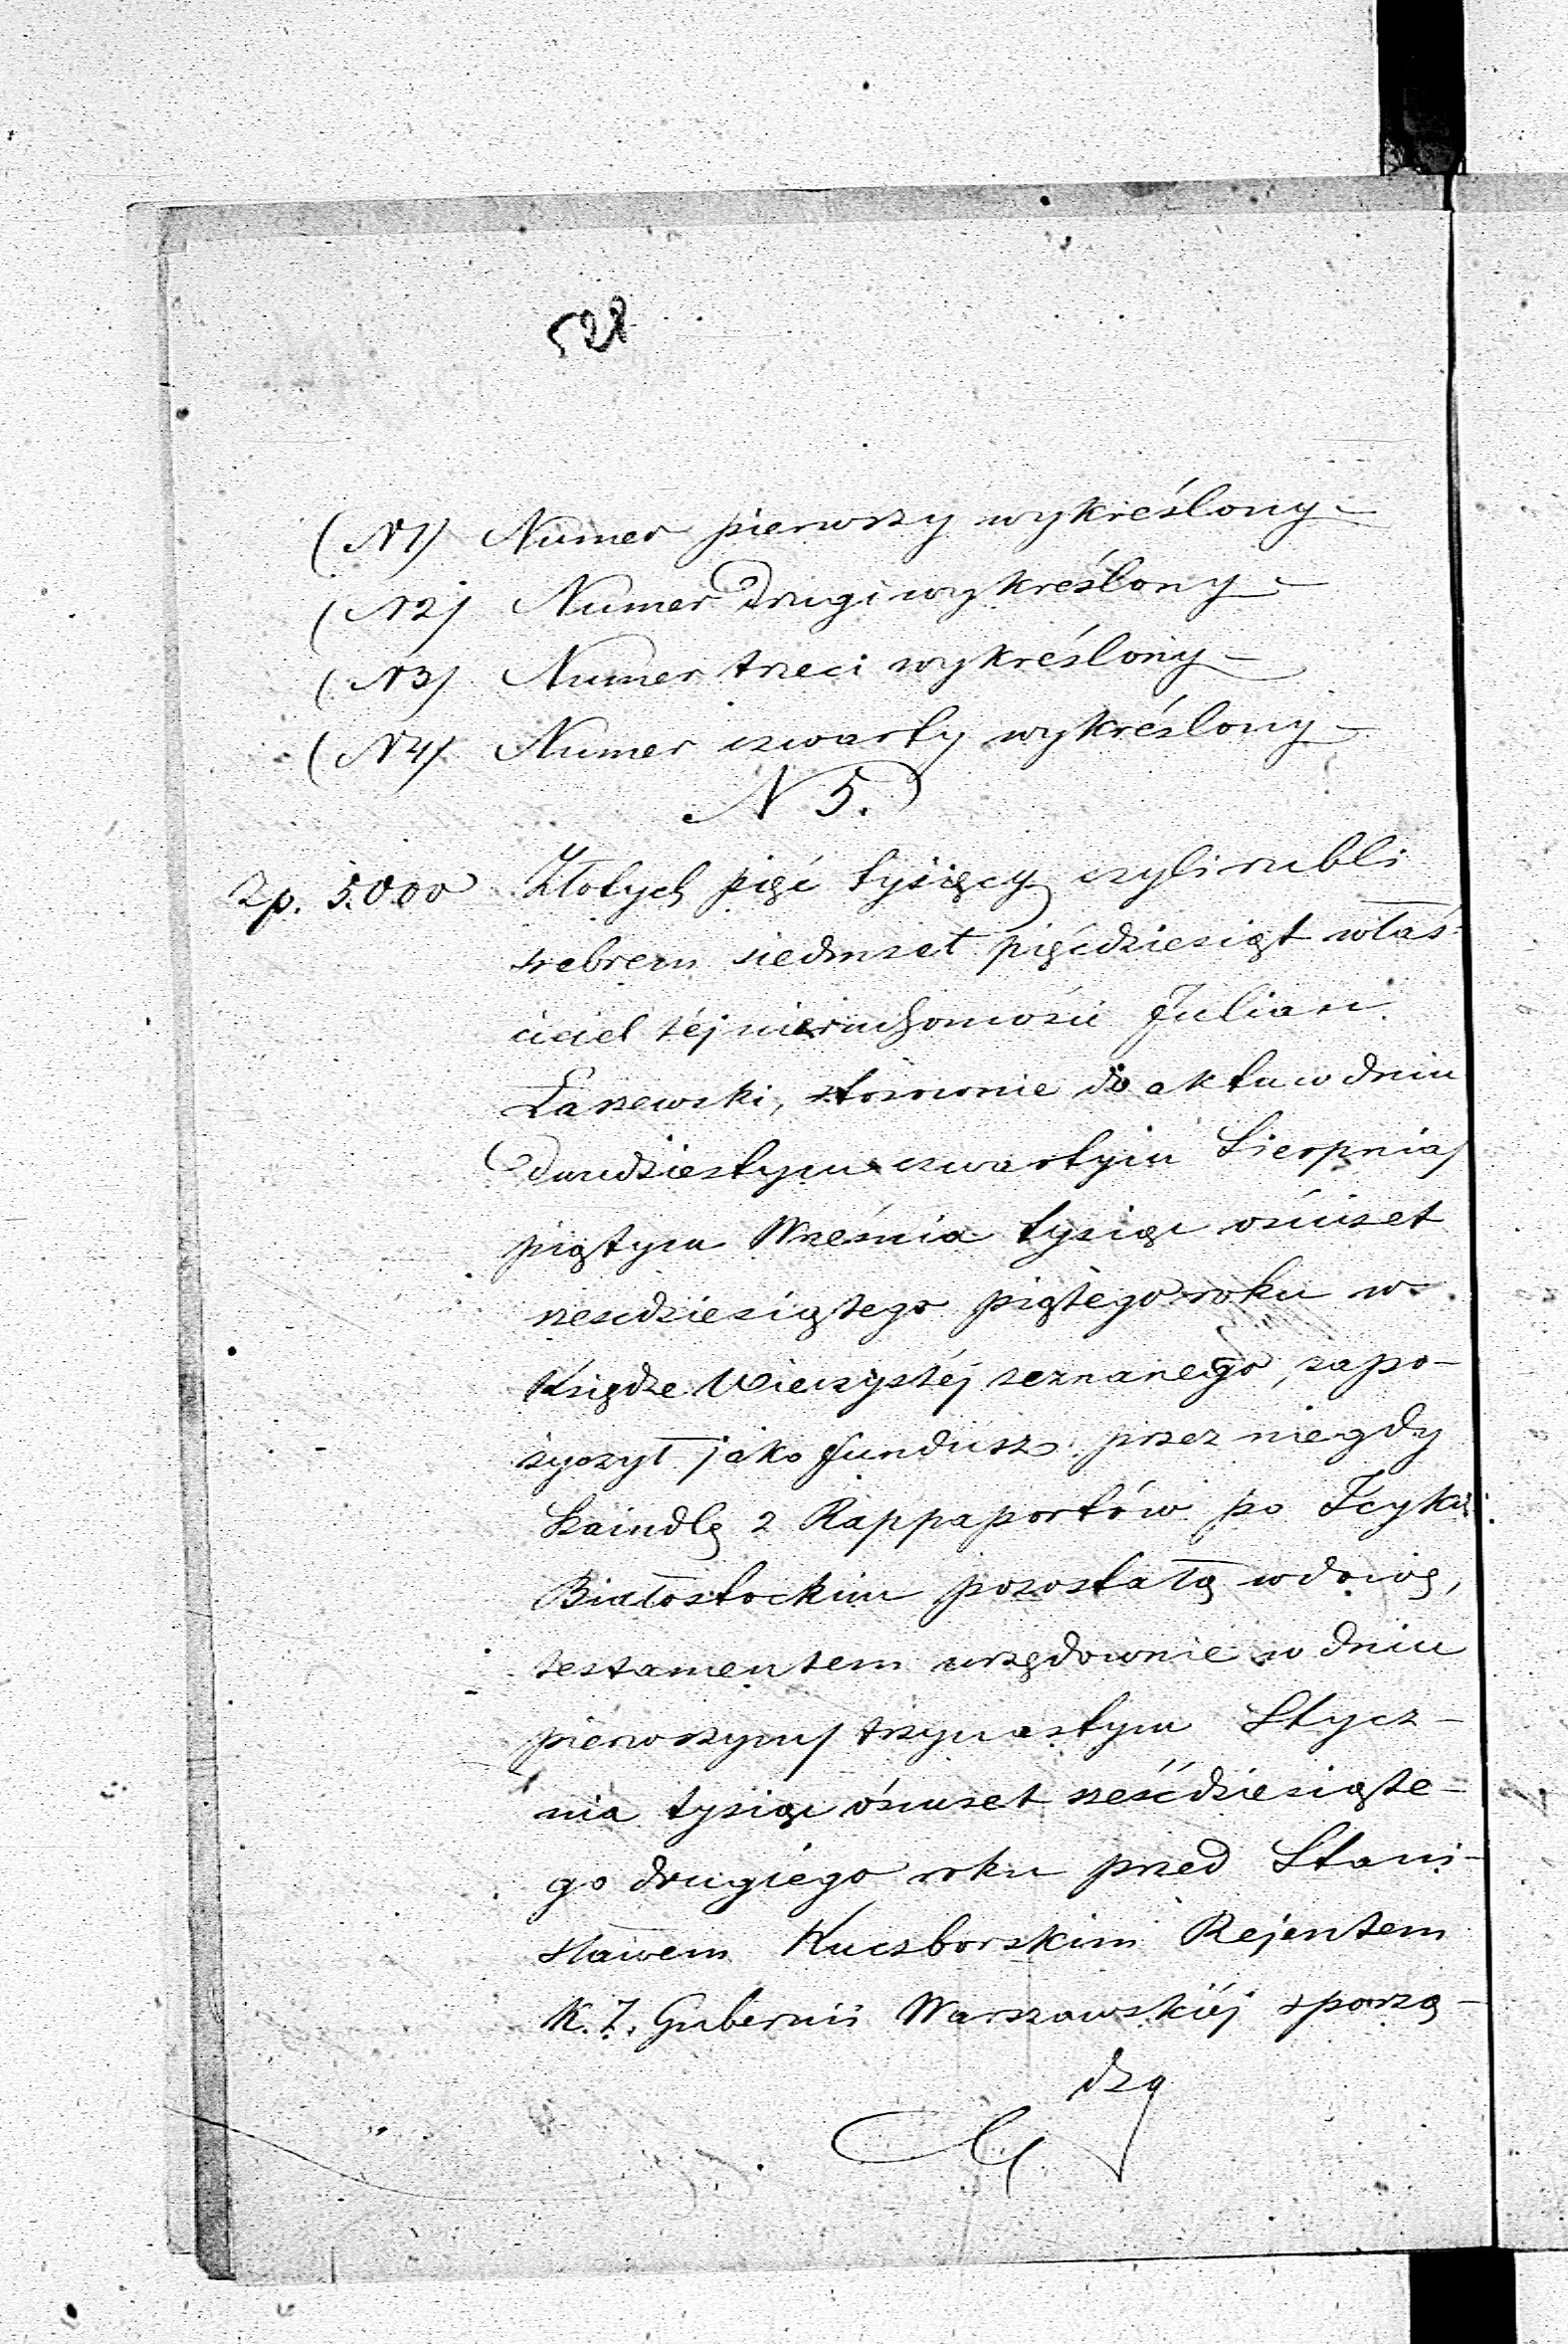 528
(N1) Numer pierwszy wykreślony –
(N2) Numer drugi wykreślony –
(N3) Numer trzeci wykreślony –
(N4) Numer czwarty wykreślony –
N 5.
Zp. 5.000 Złotych pięć tysięcy czyli rubli
srebrem siedmset pięćdziesiąt właś-
ciciel téj nieruchomości Julian
Łaszewski, stosownie do aktu w dniu
Dwudziestym czwartym Sierpnia/
piątym Wrzesnia tysiąc ośmset
szesdziesiątego piątego roku w
Księdze Wieczystéj zeznanego, zapo-
życzył jako fundusz przez niegdy
Szaindlę z Rappaportów po Icyku
Białostockim pozostałą wdowę,
testamentem urzędownie w dniu
pierwszym/ trzynastym Stycz-
nia tysiąc ośmset sześćdziesiąte-
go drugiego roku przed Stani-
sławem Kuczborskim Rejentem
K. Z. Gubernii Warszawskiéj sporzą-
dzo